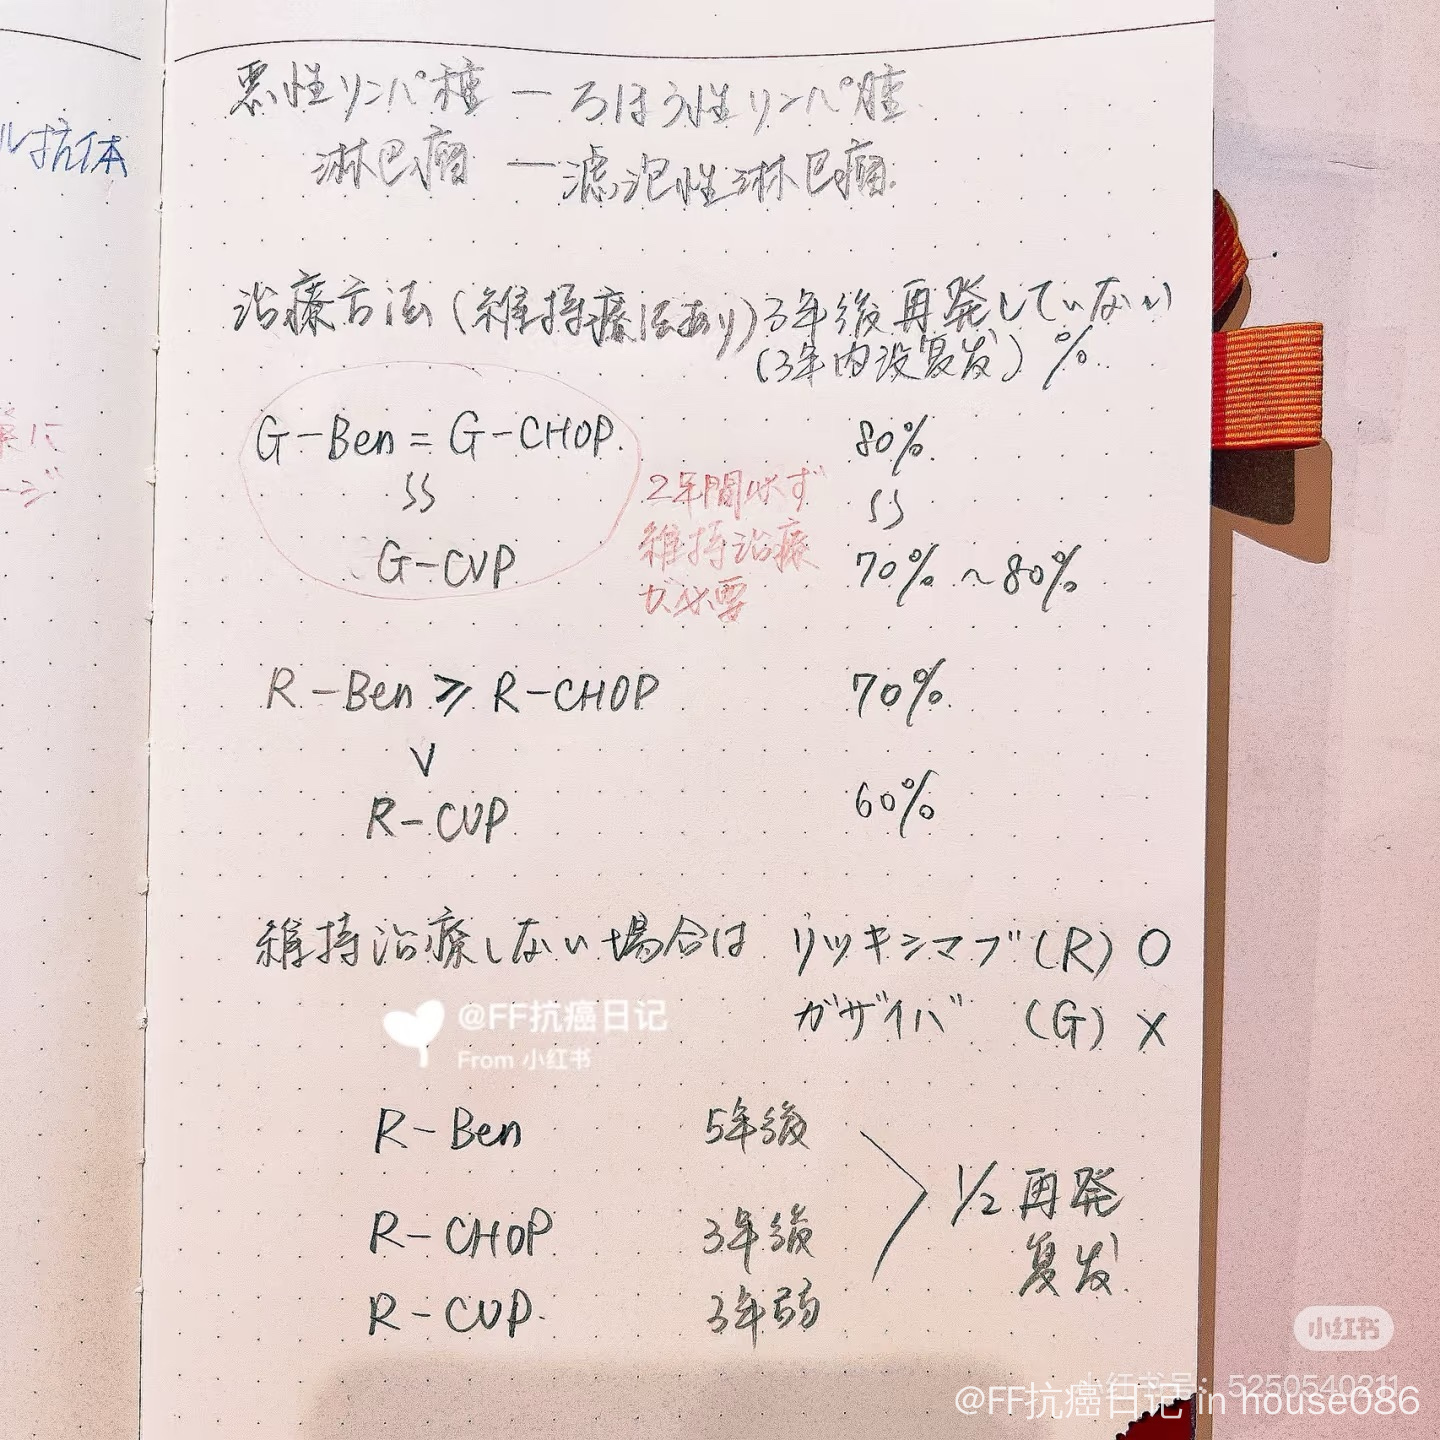 ル抗体
悪性リンパ種 — ろほう性リンパ腫
淋巴瘤 — 滤泡性淋巴瘤.
治療方法(維持療法あり)3年後再発していない
(3年内没复发) %
G-Ben = G-CHOP. 80%
SS SS
2年間必ず
維持治療
が必要
G-CVP 70% ~ 80%
R-Ben ≥ R-CHOP 70%
V
R-CVP 60%
維持治療しない場合は リツキシマブ(R) O
ガザイバ (G) X
@FF抗癌日记
From 小红书
R-Ben 5年後
R-CHOP 3年後
1/2 再発
复发
R-CVP. 3年弱
小红书
小红书号: 5250540211
@FF抗癌日记 in house086